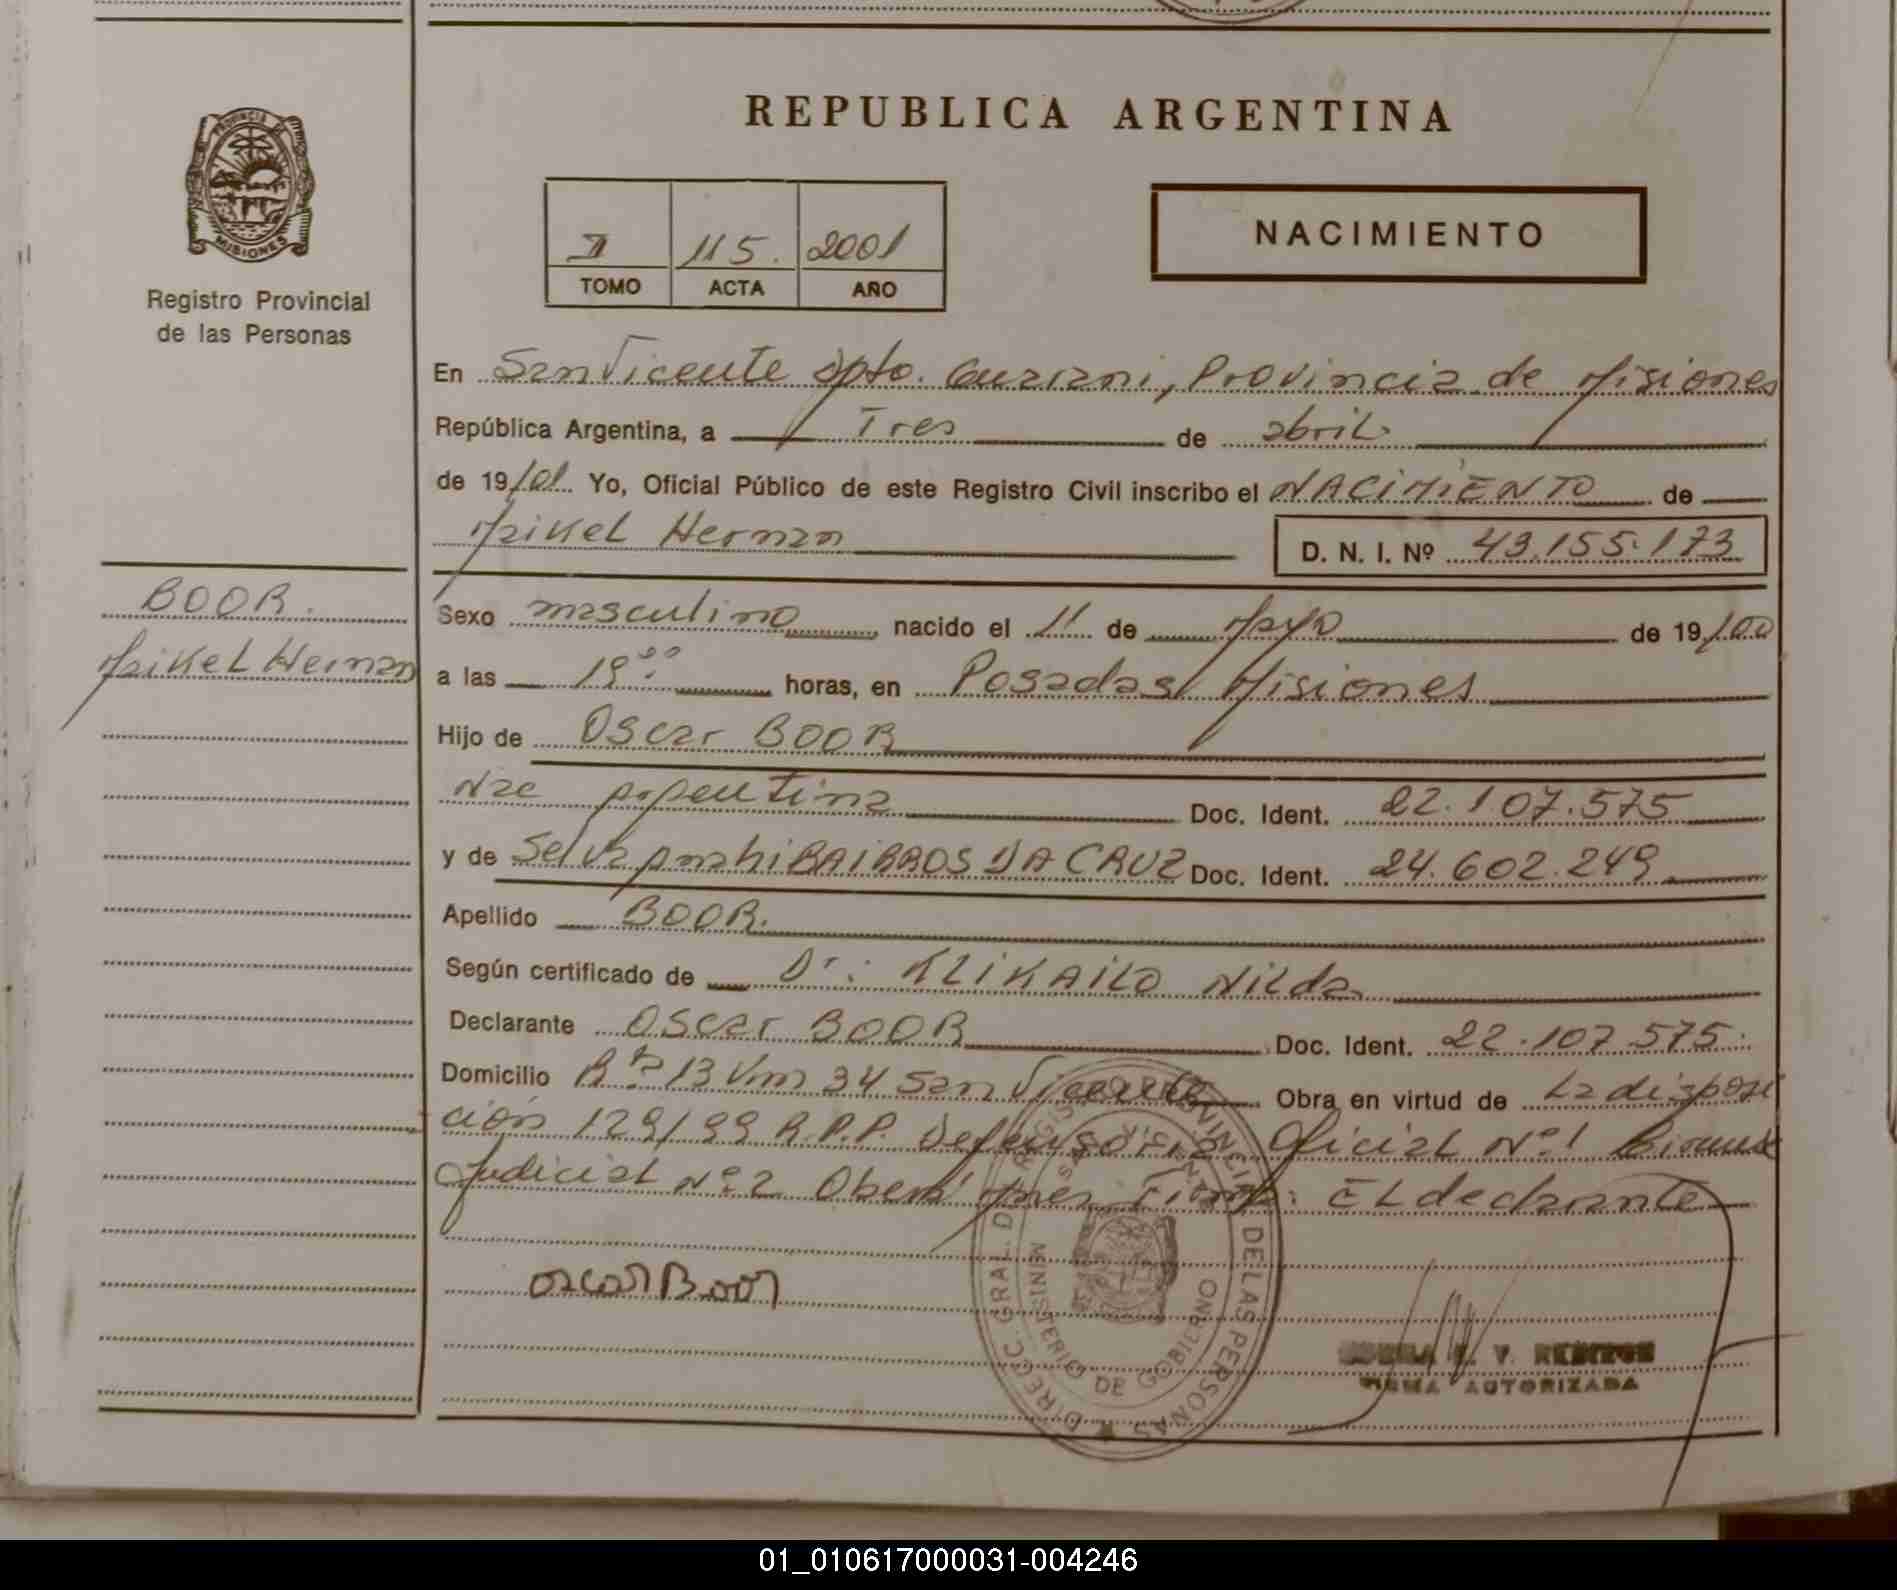 REPUBLICA ARGENTINA
PROVINCIA DE
MISIONES
Registro Provincial
de las Personas
I 115. 2001
TOMO ACTA AÑO
NACIMIENTO
En San Vicente dpto. Guarani, Provincia de Misiones
República Argentina, a Tres de abril
de 19/01 Yo, Oficial Público de este Registro Civil inscribo el NACIMIENTO de
Maikel Hernan D. N. I. Nº 43.155.173
BOOR.
Maikel Hernan
Sexo masculino nacido el 11 de Mayo de 19/00
a las 19⁰⁰ horas, en Posadas Misiones
Hijo de Oscar BOOR
Nac argentina Doc. Ident. 22.107.575
y de Selva BAIRROS DA CRUZ Doc. Ident. 24.602.249
Apellido BOOR.
Según certificado de Dr: Nilda
Declarante Oscar BOOR Doc. Ident. 22.107.575.
Domicilio 13 Km 34 San Vicente Obra en virtud de La disposi
ción 129/99 R.P.P. Defensoria Oficial Nº1
Judicial Nº2 Oberá Mnes Firma: EL declarante
Oscar Boor
DIRECC. GRAL. DE REGISTRO PROVINCIAL DE LAS PERSONAS
MINISTERIO DE GOBIERNO
SAN VICENTE
FIRMA AUTORIZADA
01_010617000031-004246